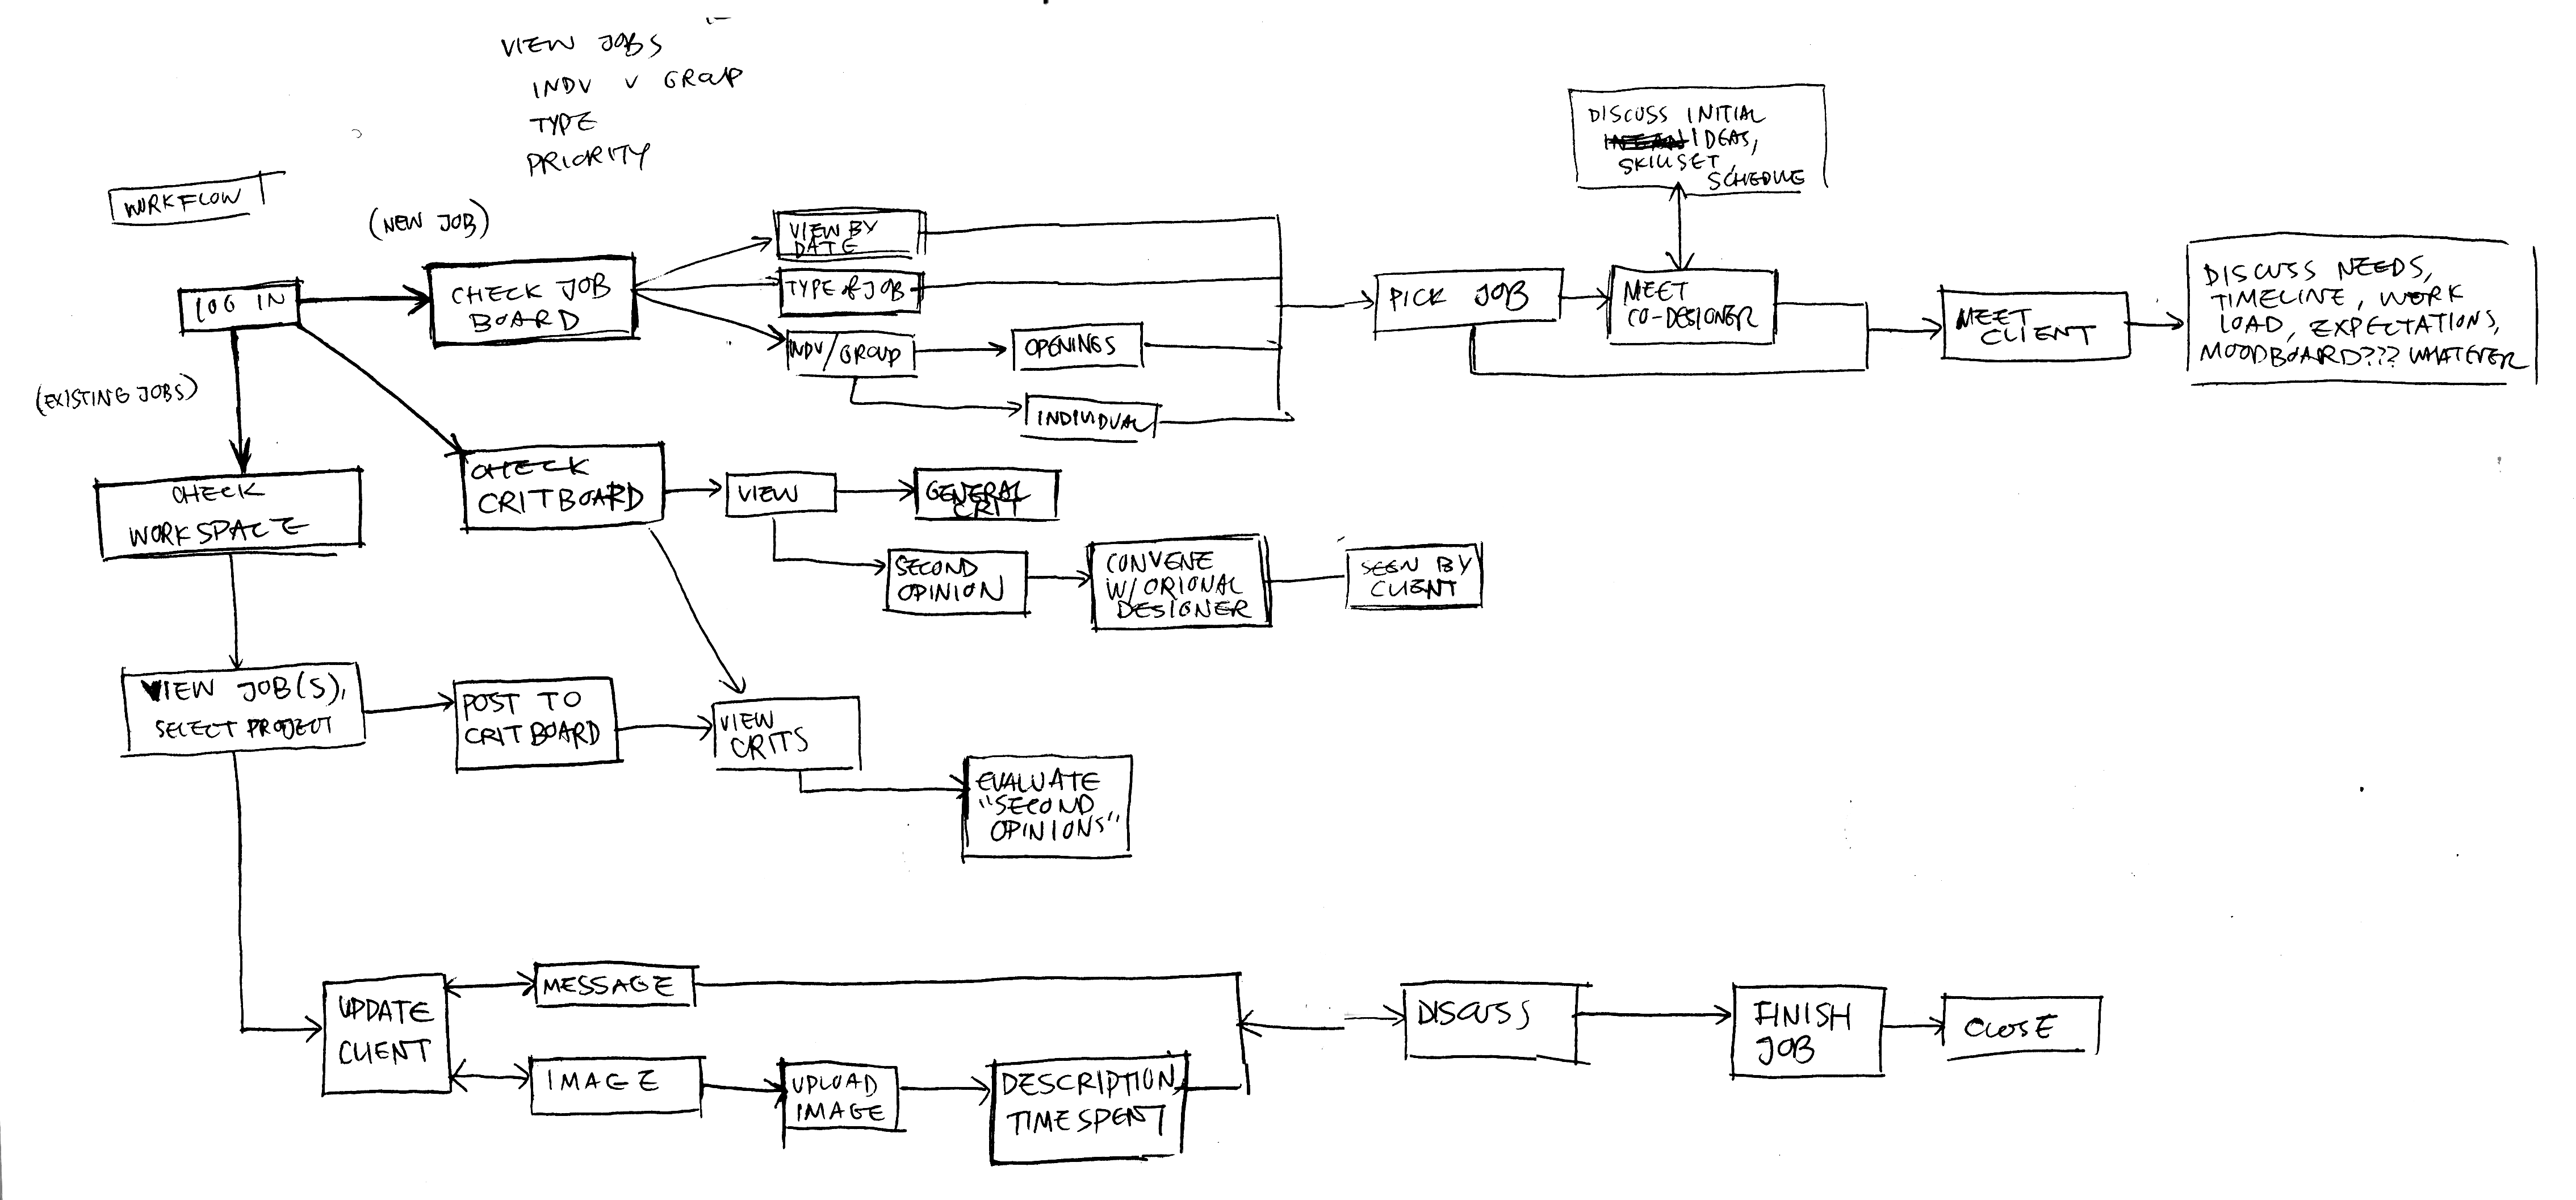 VIEW JOBS
INDV V GROUP
TYPE
PRIORITY
WORKFLOW
(NEW JOB)
(EXISTING JOBS)
LOG IN
CHECK JOB
BOARD
VIEW BY
DATE
TYPE of JOB
INDV/GROUP
OPENINGS
INDIVIDUAL
PICK JOB
DISCUSS INITIAL
IDEAS,
SKILLSET,
SCHEDULE
MEET
CO-DESIGNER
MEET
CLIENT
DISCUSS NEEDS,
TIMELINE, WORK
LOAD, EXPECTATIONS,
MOODBOARD??? WHATEVER
CHECK
WORKSPACE
CHECK
CRITBOARD
VIEW
GENERAL
CRIT
SECOND
OPINION
CONVENE
W/ ORIONAL
DESIGNER
SEEN BY
CLIENT
VIEW JOB(S),
SELECT PROJECT
POST TO
CRITBOARD
VIEW
CRITS
EVALUATE
"SECOND
OPINIONS"
UPDATE
CLIENT
MESSAGE
IMAGE
UPLOAD
IMAGE
DESCRIPTION,
TIME SPENT
DISCUSS
FINISH
JOB
CLOSE